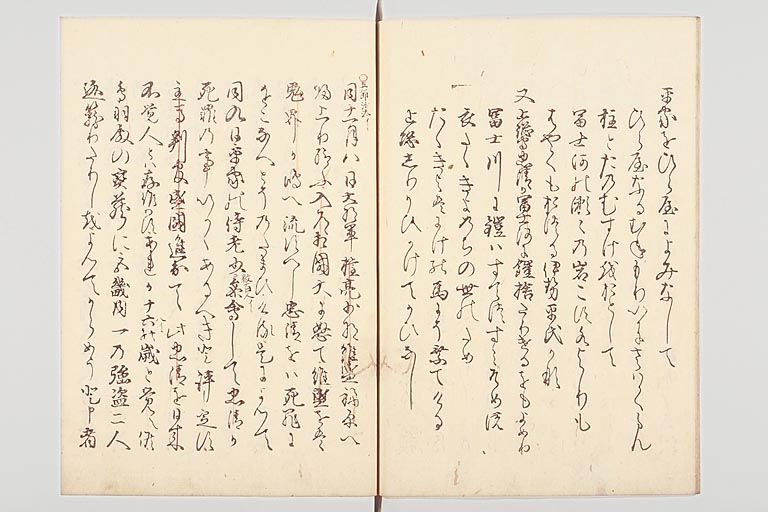 平家をひら屋によみなして
ひら屋なるむねもりいかにさはくらん
柱とたのむすけをおとして
冨士河のせゝの岩こす水よりも
はやくもおつる伊勢平氏かな
又上総守忠清冨士河に鎧捨たりけるをもよめり
冨士川に鎧はすてつすみそめの
衣たゝきよのちの世のため
たゝきよはにけの馬にそ乗てける
上総しりかひかけてかひなし
五節沙汰
同十一月八日大将軍権亮少将維盛福原へ
帰上り給ふ入道相國大に怒て維盛をは
鬼界か嶋へ流すへし忠清をは死罪に
おこなへとその給ひける是によつて
同九日平家の侍老少数百人参會して忠清か
死罪の事いかゝあるへきと評定す
主馬判官盛國進出て此忠清を日来
不覚人とは存候はすあれか十六の歳と覚候
鳥羽殿の宝蔵に五畿内一の強盗二人
逃籠りたりしをよてからめうと申者